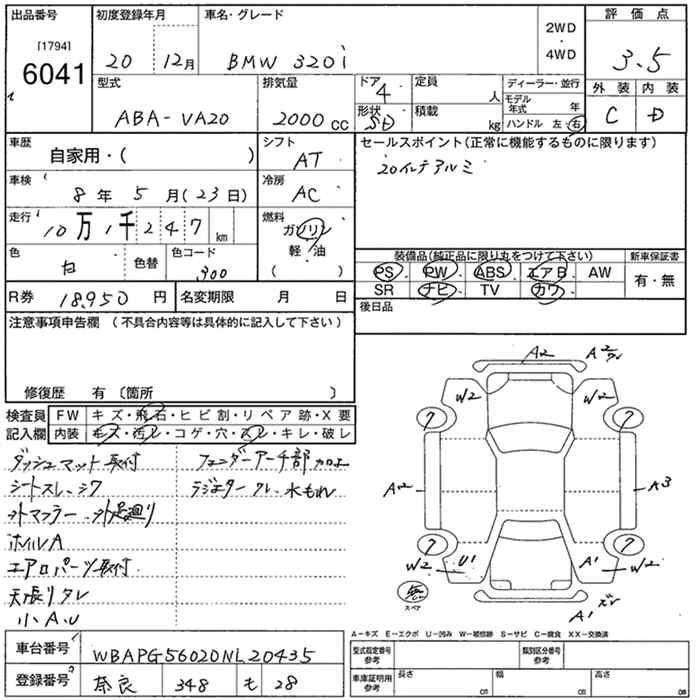 出品番号 初度登録年月 車名・グレード 評価点
[1794]
6041
20 12月 BMW 320i 2WD・4WD 3.5
型式 排気量 ドア 4 定員 人 ディーラー・並行 外装 内装
ABA-VA20 2000cc 形状 SD 積載 kg モデル年式 年 C D
ハンドル 左・右
車歴 自家用・( ) シフト AT セールスポイント(正常に機能するものに限ります)
20インチアルミ
車検 8年5月(23日) 冷房 AC
走行 10万1千247km 燃料 ガソリン
軽・油
( )
色 白 色替 色コード 300
装備品(純正品に限り丸をつけて下さい) 新車保証書
PS PW ABS エアB AW 有・無
SR ナビ TV カワ
R券 18,950円 名変期限 月 日 後日品
注意事項申告欄 (不具合内容等は具体的に記入して下さい)
修復歴 有 〔箇所 〕
検査員記入欄 FW キズ・飛石・ヒビ割・リペア跡・X要
内装 キズ・汚レ・コゲ・穴・スレ・キレ・破レ
ダッシュマット取付 フェンダーアーチ部カロよ
シートスレ、シワ ラジエター クレ、水もれ
外マフラー、外足廻り
ホイルA
エアロパーツ取付
天張りタレ
小A、U
A2 A2
W2 W2
?
?
A2 A3
?
?
W2 U1 A1 W2
A1
スペア
A-キズ E-エクボ U-凹み W-補修跡 S-サビ C-腐食 XX-交換済
車台番号 WBAPG56020NL20435
登録番号 奈良 348 も 28
型式指定番号 参考 類別区分番号 参考
車庫証明用 参考 長さ cm 幅 cm 高さ cm